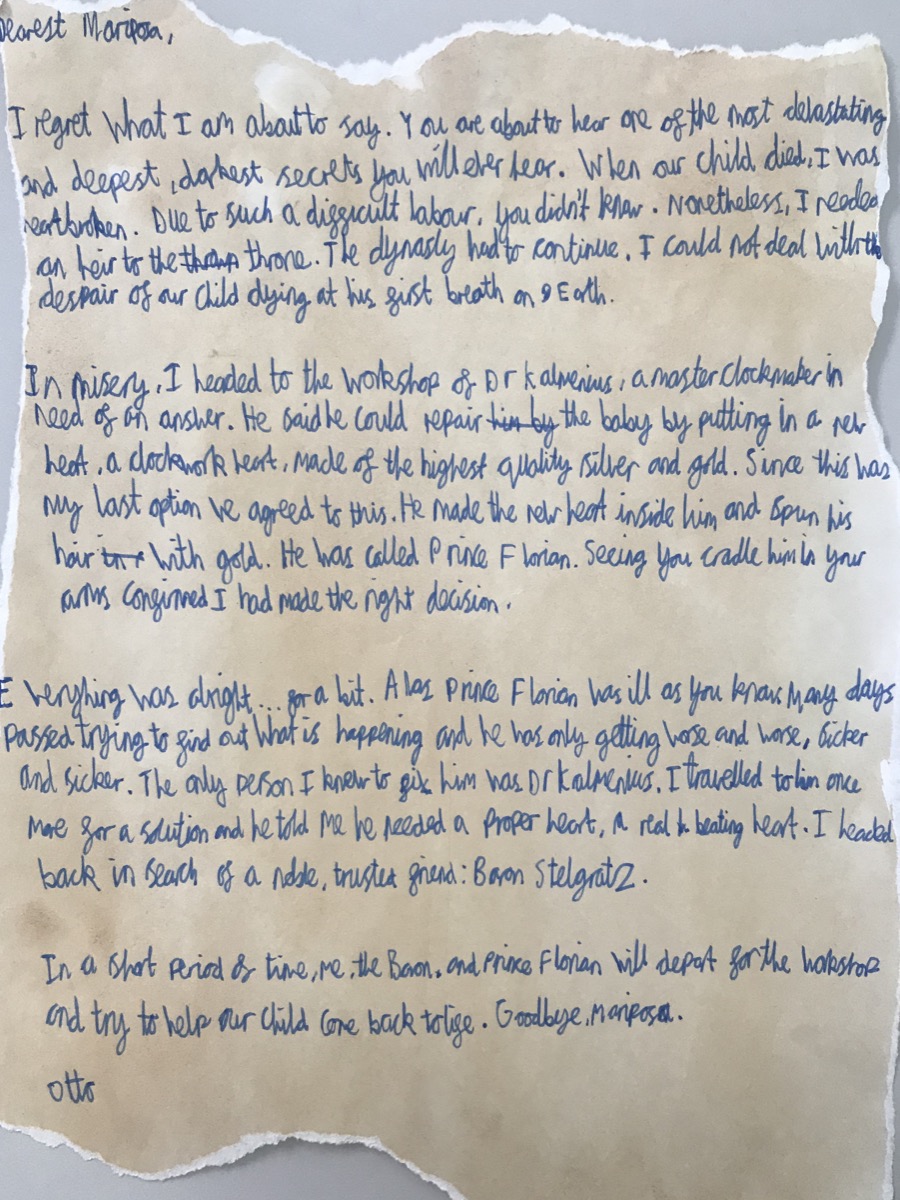 Dearest Mariposa,
I regret what I am about to say. You are about to hear one of the most devastating
and deepest, darkest secrets you will ever hear. When our child died, I was
heartbroken. Due to such a difficult labour, you didn't know. Nonetheless, I needed
an heir to the throne. The dynasty had to continue. I could not deal with the
despair of our child dying at his first breath on Earth.
In misery, I headed to the workshop of Dr Kalmenius, a master clockmaker in
need of an answer. He said he could repair him by the baby by putting in a new
heat, a clockwork heart, made of the highest quality silver and gold. Since this was
my last option we agreed to this. He made the new heat inside him and spun his
hair with gold. He was called Prince Florian. Seeing you cradle him in your
arms confirmed I had made the right decision.
Everyhing was alright... for a bit. Alas Prince Florian was ill as you know. Many days
passed trying to find out what is happening and he was only getting worse and worse, sicker
and sicker. The only person I knew to fix him was Dr Kalmenius. I travelled to him once
more for a solution and he told me he needed a proper heart, a real beating heart. I headed
back in search of a noble, trusted friend: Baron Stelgratz.
In a short period of time, me, the Baron, and Prince Florian will depart for the workshop
and try to help our child come back to life. Goodbye, Mariposa.
Otto